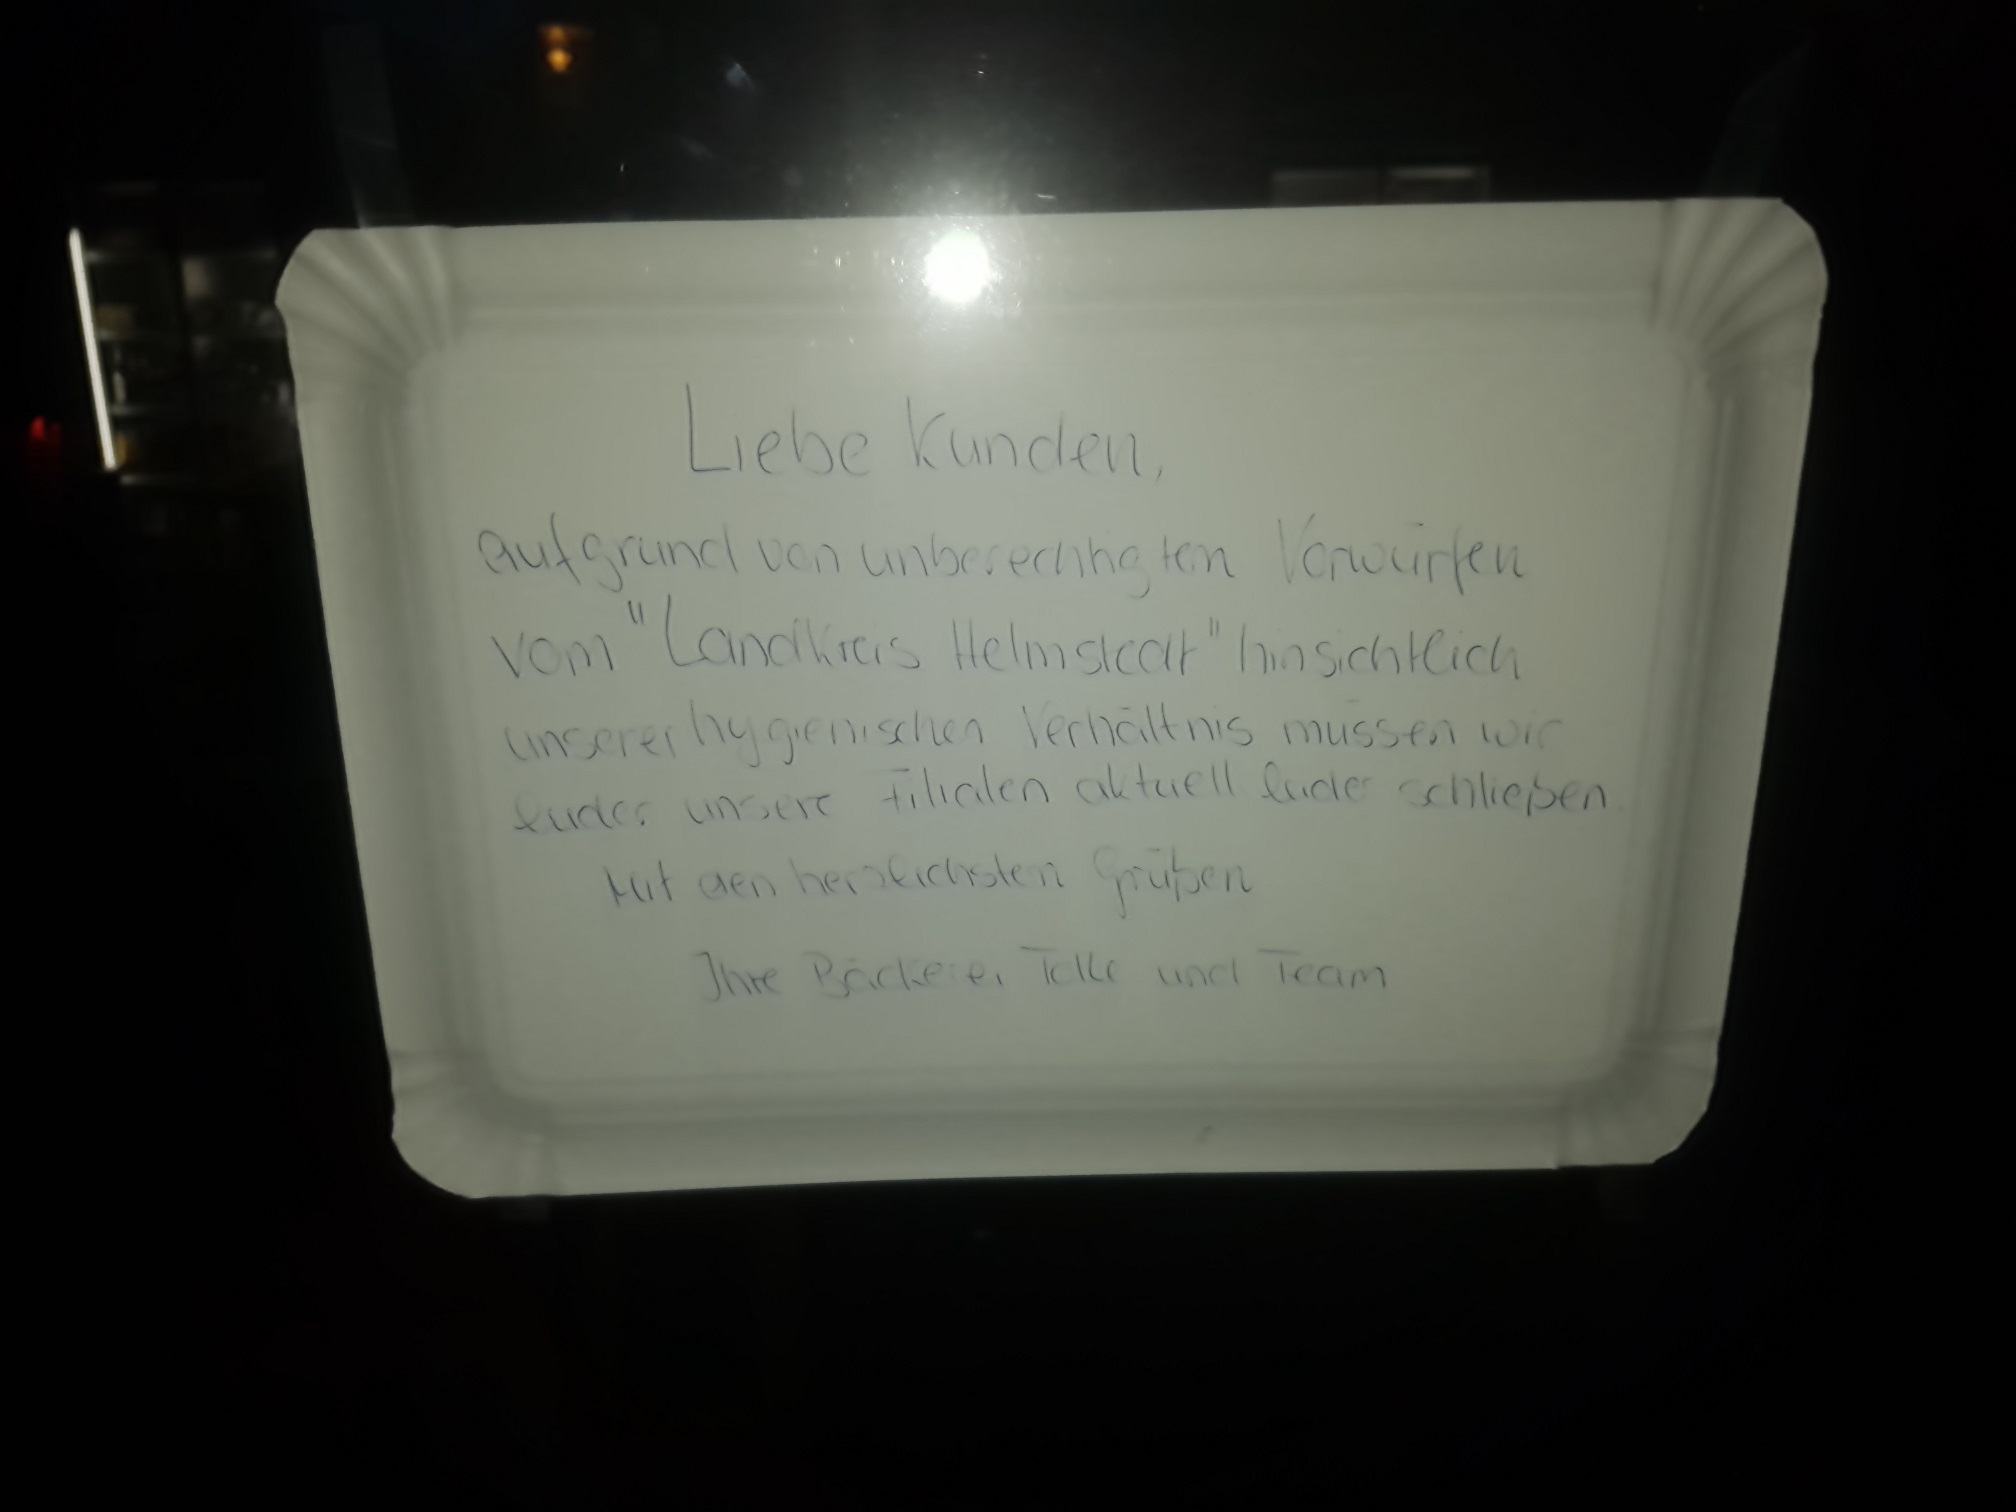 Liebe Kunden,
aufgrund von unberechtigten Vorwürfen
vom "Landkreis Helmstedt" hinsichtlich
unserer hygienischen Verhältnis müssen wir
leider unsere Filialen aktuell leider schließen.
Mit den herzlichsten Grüßen
Ihre Bäckerei Tolle und Team